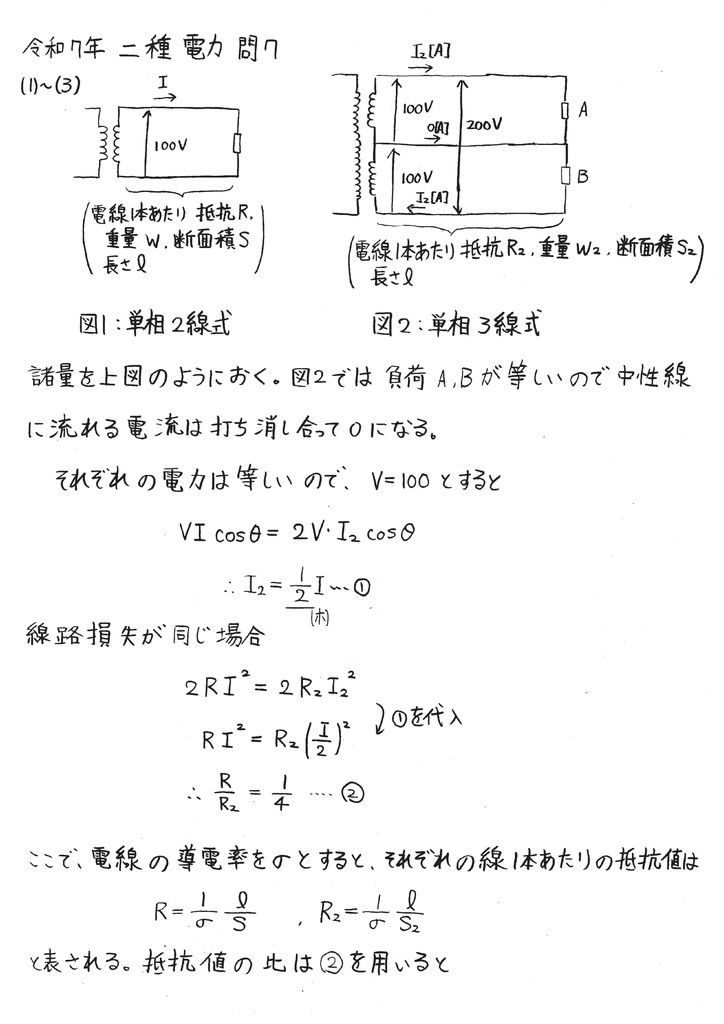 令和7年 二種 電力 問7
(1)~(3)
I
100V
(電線1本あたり 抵抗R,
重量W, 断面積S
長さℓ)
図1:単相2線式
I₂[A]
100V
0[A]
200V
100V
I₂[A]
A
B
(電線1本あたり 抵抗R₂, 重量W₂, 断面積S₂)
長さℓ
図2:単相3線式
諸量を上図のようにおく。図2では負荷A,Bが等しいので中性線
に流れる電流は打ち消し合って0になる。
それぞれの電力は等しいので、V=100とすると
VI cosθ = 2V・I₂ cosθ
∴ I₂ = 1/2 I … ①
(ホ)
線路損失が同じ場合
2RI² = 2R₂I₂²
①を代入
RI² = R₂(I/2)²
∴ R/R₂ = 1/4 …. ②
ここで、電線の導電率をσとすると、それぞれの線1本あたりの抵抗値は
R = 1/σ ℓ/S , R₂ = 1/σ ℓ/S₂
と表される。抵抗値の比は②を用いると